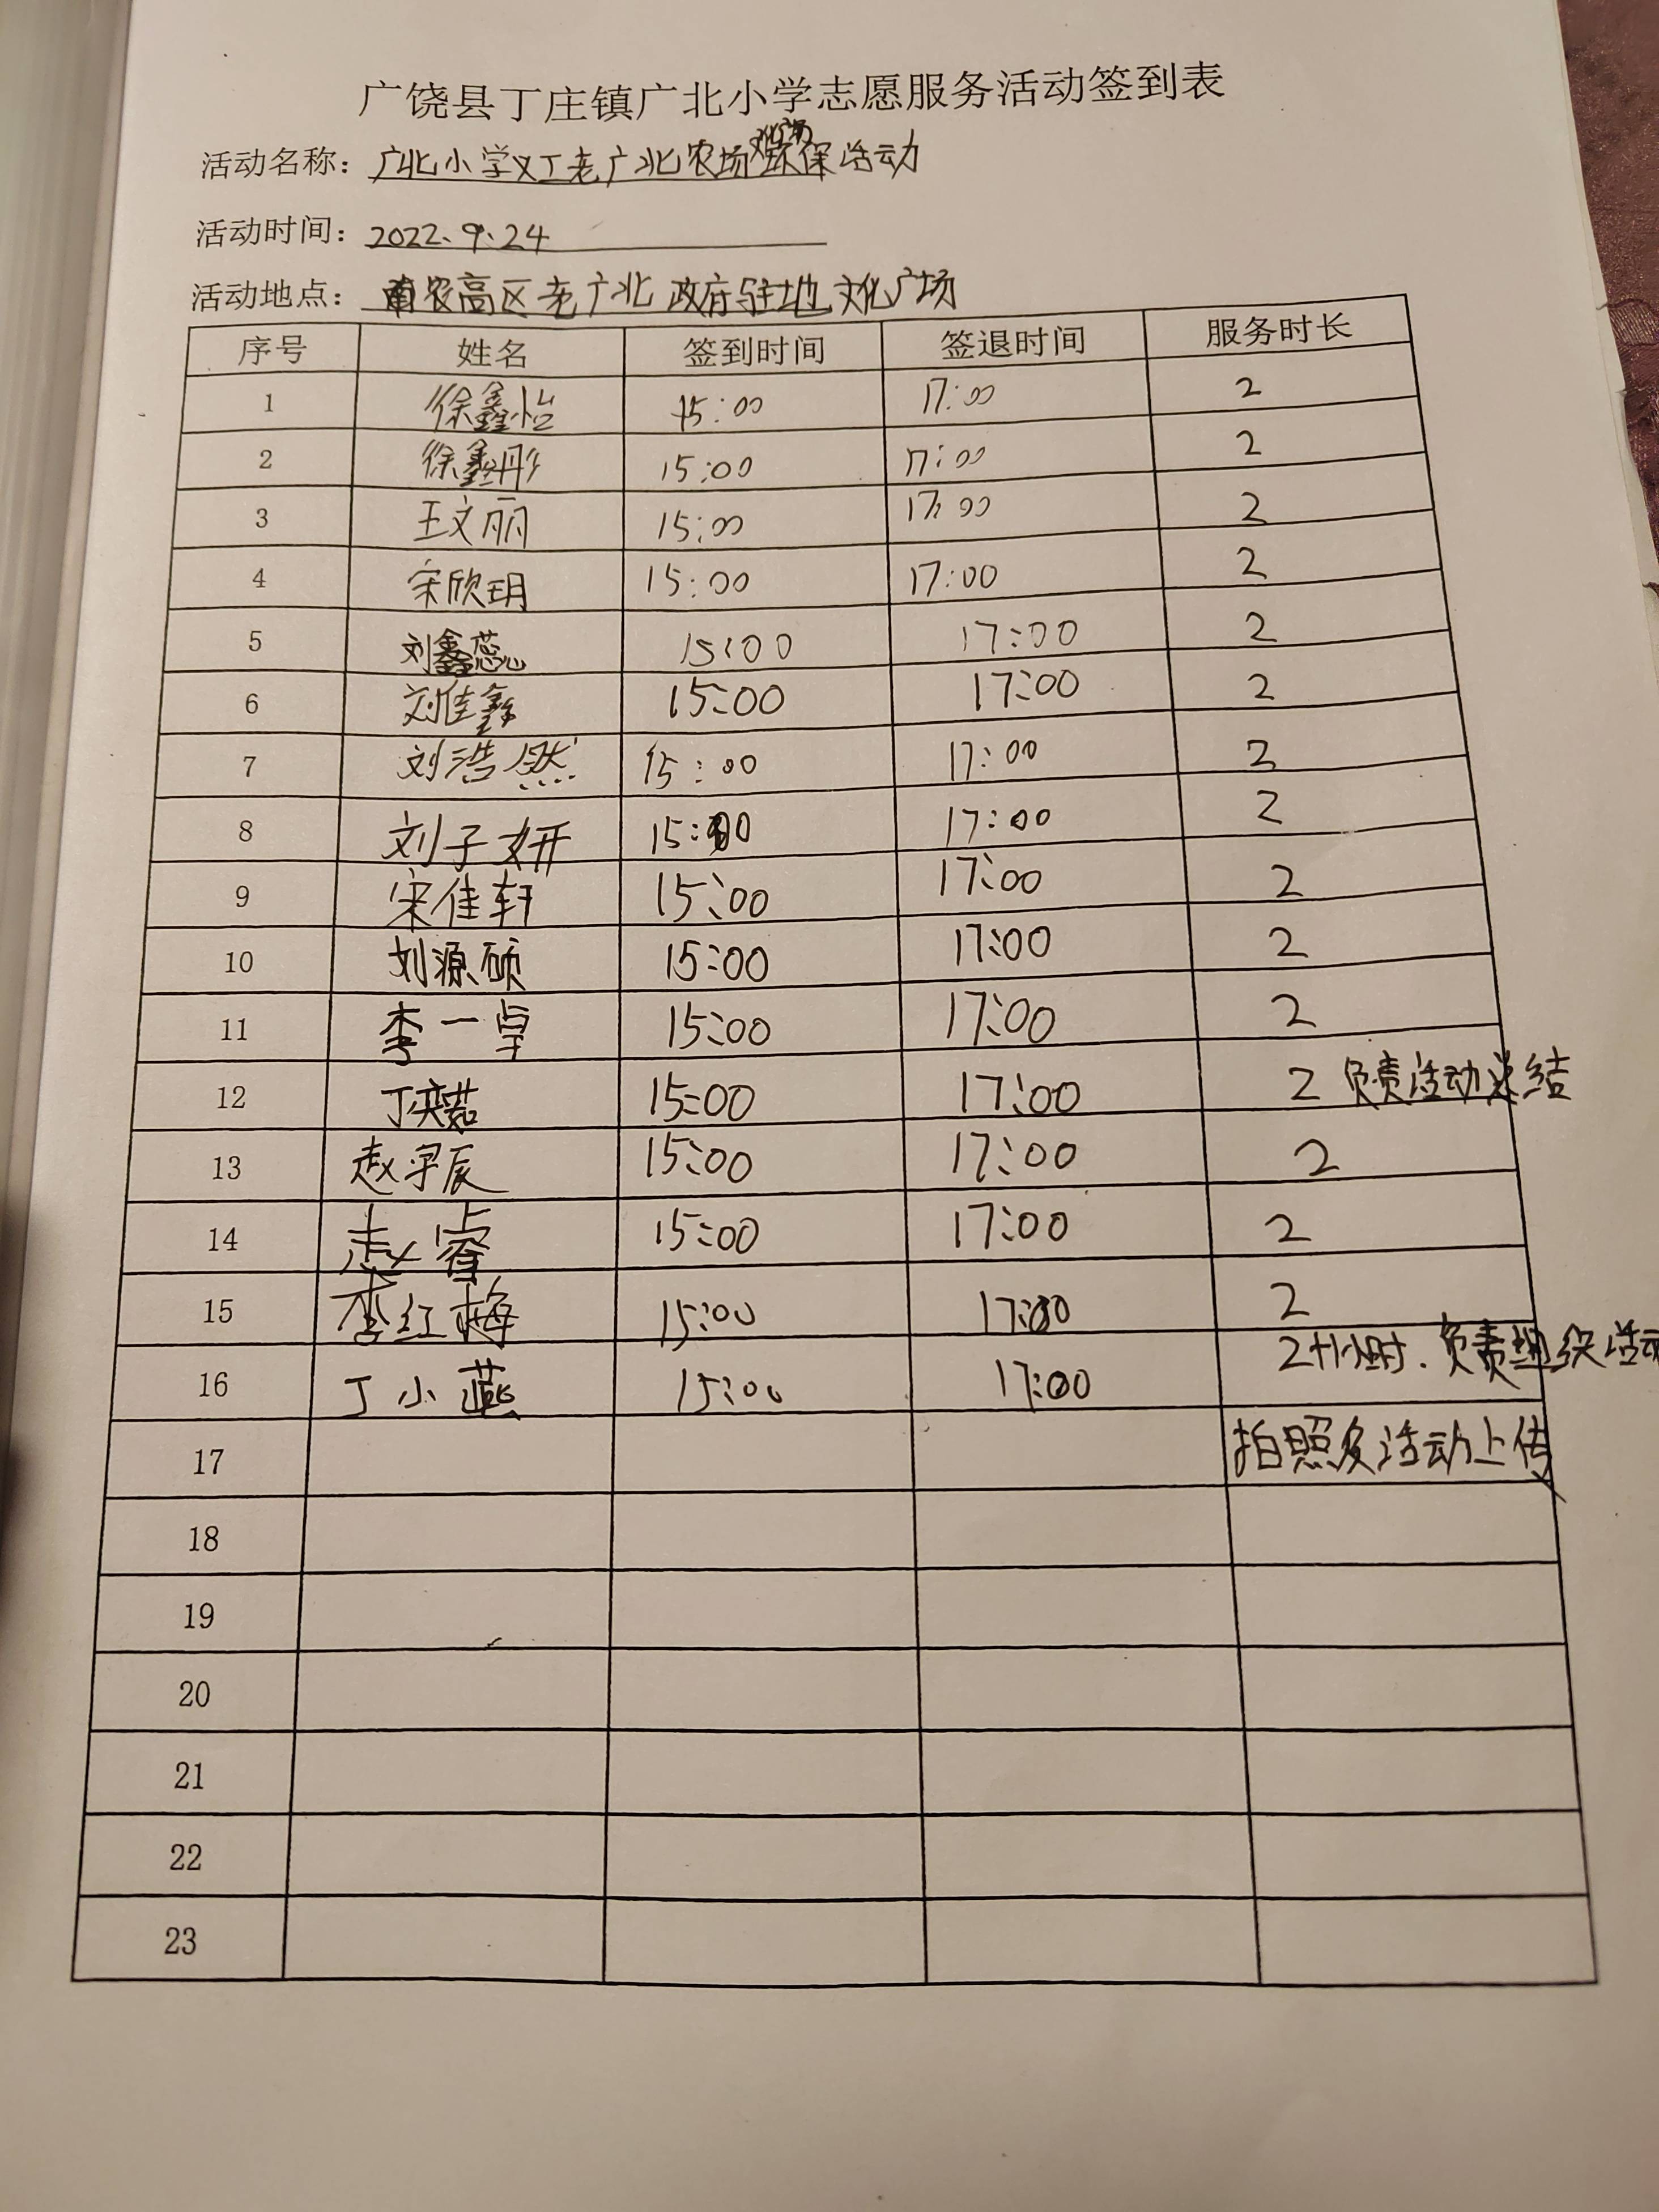 广饶县丁庄镇广北小学志愿服务活动签到表
活动名称：广北小学义工老广北农场环保活动
活动时间：2022.9.24
活动地点：农高区老广北政府驻地文化广场
序号 姓名 签到时间 签退时间 服务时长
1 徐鑫怡 15:00 17:00 2
2 徐鑫彤 15:00 17:00 2
3 王文丽 15:00 17:00 2
4 宋欣玥 15:00 17:00 2
5 刘鑫蕊 15:00 17:00 2
6 刘佳鑫 15:00 17:00 2
7 刘浩然 15:00 17:00 2
8 刘子妍 15:00 17:00 2
9 宋佳轩 15:00 17:00 2
10 刘源硕 15:00 17:00 2
11 李一卓 15:00 17:00 2
12 丁奕茹 15:00 17:00 2 负责活动总结
13 赵梓辰 15:00 17:00 2
14 赵睿 15:00 17:00 2
15 李红梅 15:00 17:00 2
16 丁小燕 15:00 17:00 2个小时.负责组织活动
17 拍照及活动上传
18
19
20
21
22
23